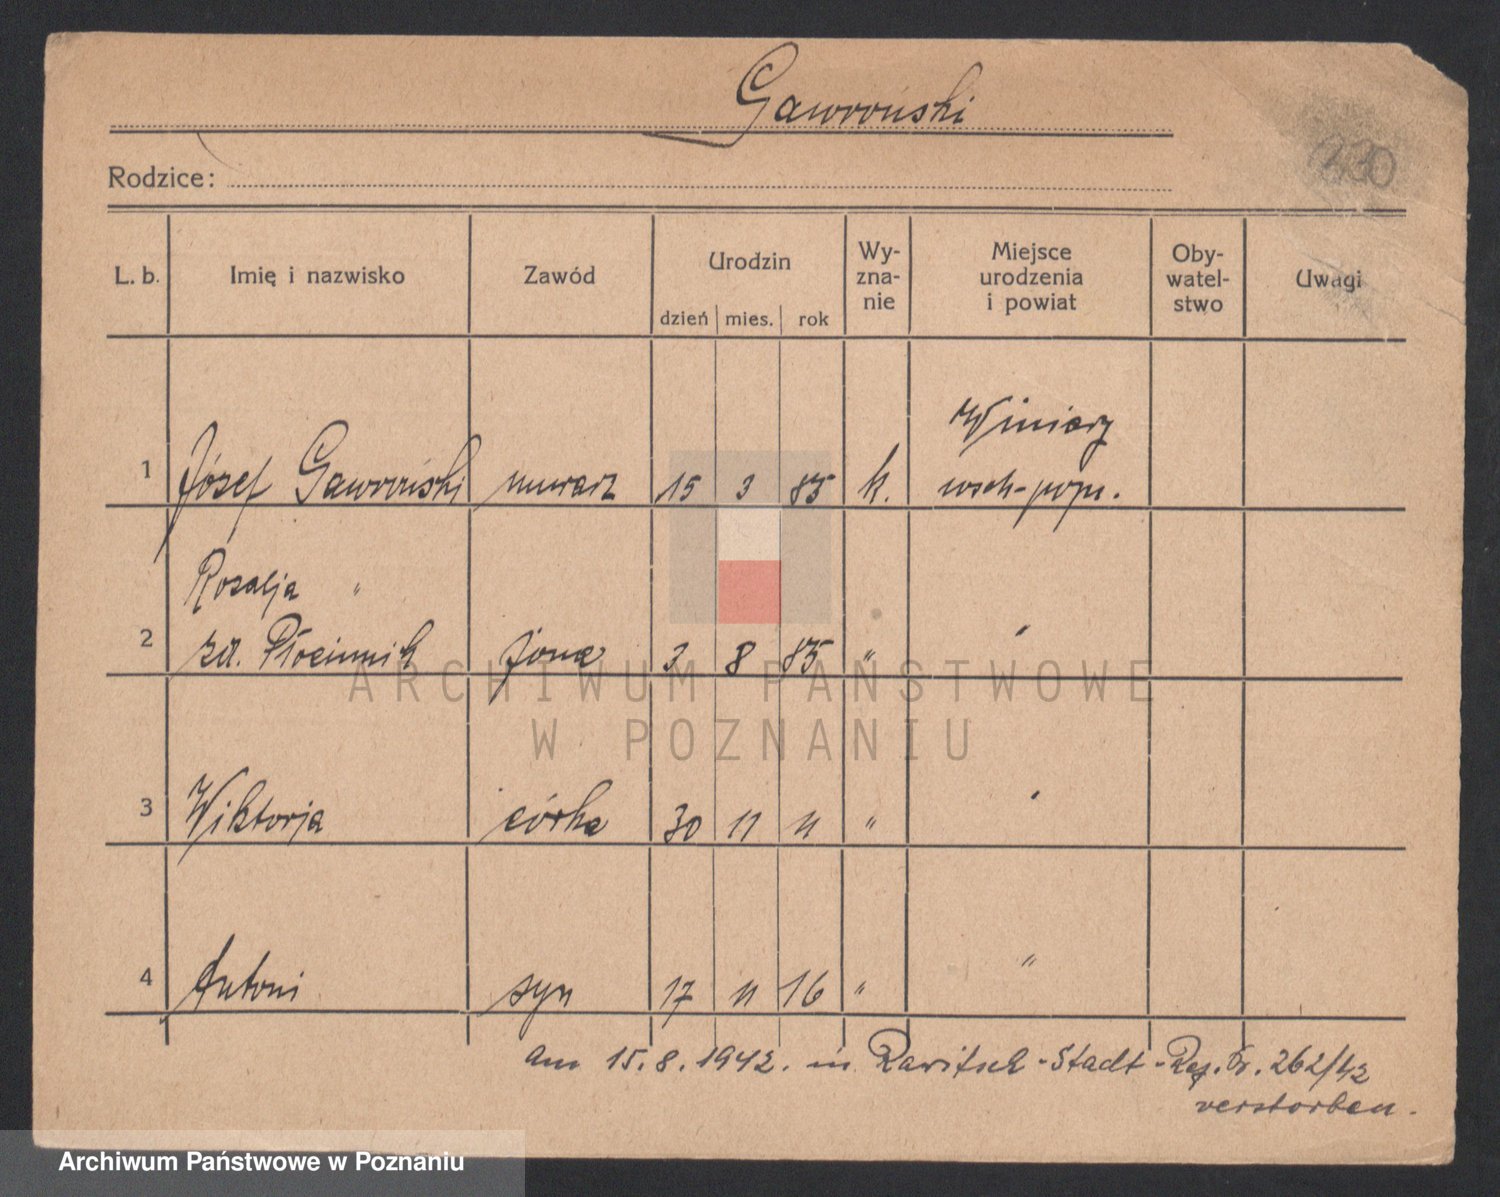 Gawroński
Rodzice:
L. b. Imię i nazwisko Zawód Urodzin dzień mies. rok Wy-zna-nie Miejsce urodzenia i powiat Oby-watel-stwo Uwagi
Winiary
1 Józef Gawroński murarz 15 3 85 k. wsch-pozn.
Rozalja "
2 zd. Płócinnik żona 3 8 85 " "
3 Wiktorja córka 30 11 11 " "
4 Antoni syn 17 11 16 " "
am 15.8.1942. in Rawitsch-Stadt-Reg. Nr. 262/42
verstorben.
ARCHIWUM PAŃSTWOWE
W POZNANIU
Archiwum Państwowe w Poznaniu